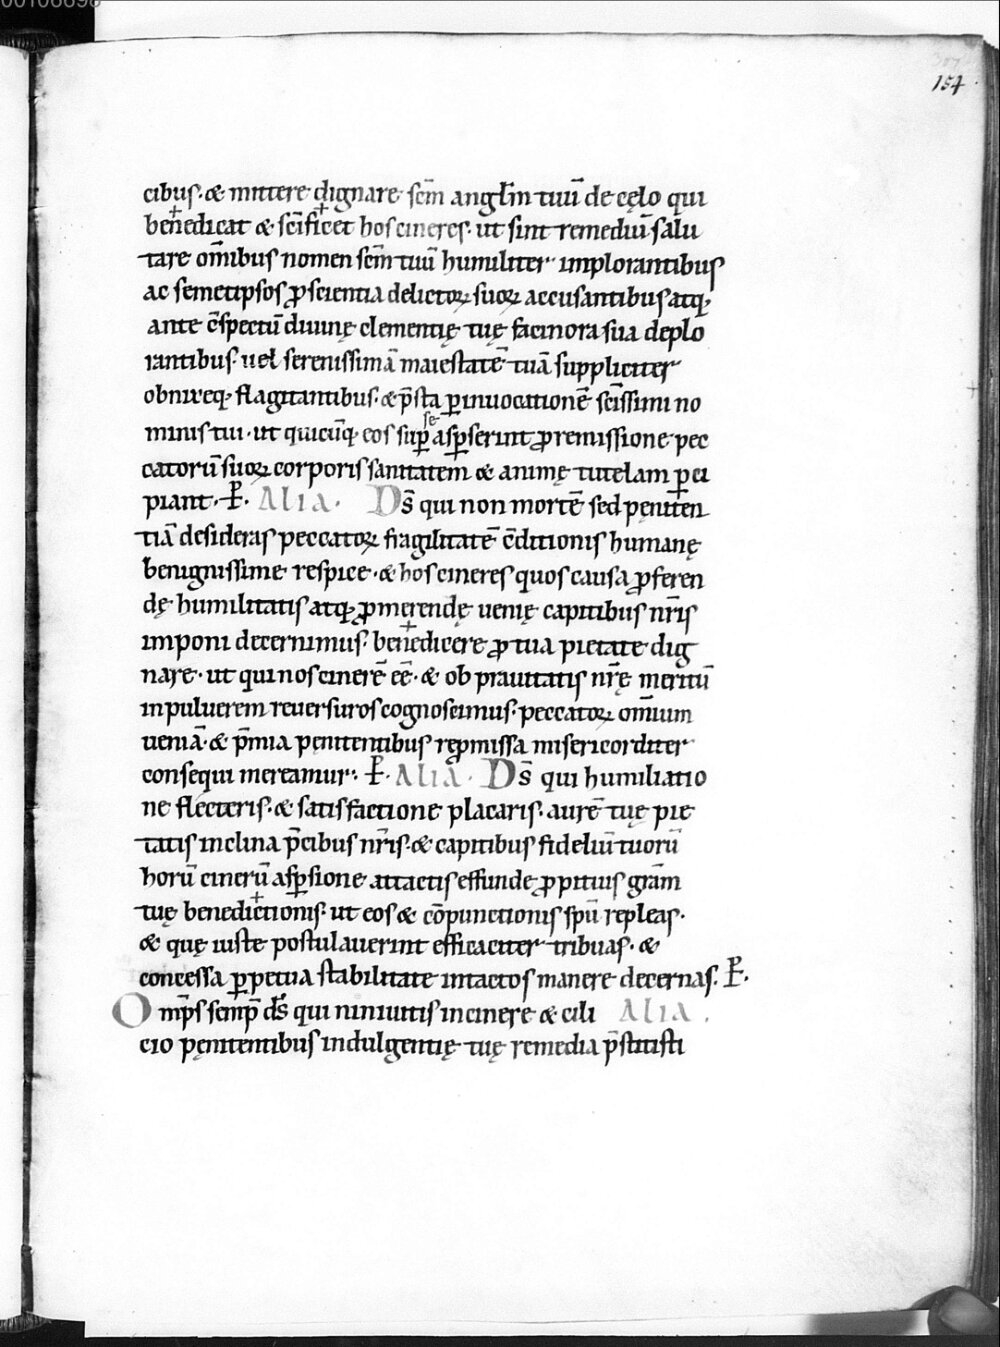 154
cibus· & mittere dignare scm̄ angl̄m tuū de cęlo qui
benedicat & sc̄ificet hos cineres· ut sint remediū salu
tare om̄ibus nomen scm̄ tuū humiliter implorantibus
ac semetipsos ꝓ scientia delictoꝝ suoꝝ accusantibus atq;
ante c̄spectū diuinę clementię tuę facinora sua deplo
rantibus· uel serenissimā maiestatē tuā suppliciter
obnixeq; flagitantibus· & p̄sta ꝑ inuocationē sc̄issimi no
minis tui· ut quicūq; eos sup̄ se asꝑserint ꝓ remissione pec
catorū suoꝝ corporis sanitatem & animę tutelam ꝑci
piant· P̶· ALIA· Ds̄ qui non mortē sed pęniten
tiā desideras peccatoꝝ fragilitatē c̄ditionis humanę
benignissime respice· & hos cineres quos causa ꝓferen
dę humilitatis atq; ꝓmerendę uenię capitibus nr̄is
imponi decernimus· benedicere ꝓ tua pietate dig
nare· ut qui nos cinerē eē· & ob prauitatis nr̄ę meritū
in puluerem reuersuros cognoscimus· peccatoꝝ om̄ium
ueniā· & p̄mia pęnitentibus rępromissa misericorditer
consequi mereamur· P̶· ALIA· Ds̄ qui humiliatio
ne flecteris· & satisfactione placaris· aurē tuę pie
tatis inclina p̄cibus nr̄is· & capitibus fideliū tuorū
horū cinerū asꝑsione attactis effunde ꝓpitius gr̄am
tuę benedictionis· ut eos & cōpunctionis sp̄u repleas·
& quę iuste postulauerint efficaciter tribuas· &
concessa ꝑpetua stabilitate intactos manere decernas· P̶·
Omp̄s semp̄ ds̄ qui niniuitis in cinere & cili ALIA·
cio pęnitentibus indulgentię tuę remedia p̄stitisti